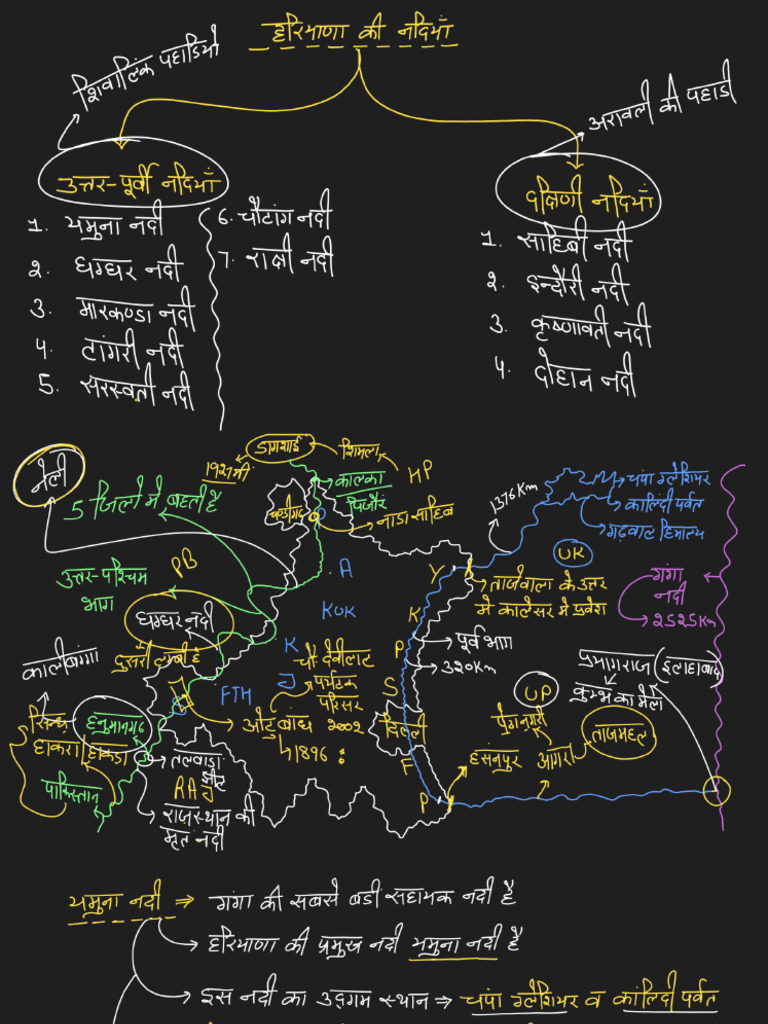 हरियाणा की नदियाँ
शिवालिक पहाडियों
अरावली की पहाडी
उत्तर-पूर्वी नदियाँ
1. यमुना नदी
2. घग्घर नदी
3. मारकण्डा नदी
4. टांगरी नदी
5. सरस्वती नदी
6. चौटांग नदी
7. राक्षी नदी
दक्षिणी नदियाँ
1. साहिबी नदी
2. इन्दौरी नदी
3. कृष्णावती नदी
4. दोहान नदी
नैली
5 जिलों में बहती है
डागशाई
शिमला
HP
1927मी
कालका
पिंजौर
चण्डीगढ़
नाडा साहिब
1376Km
चंपा ग्लेशियर
कालिंदी पर्वत
गढ़वाल हिमालय
UK
गंगा
नदी
2525Km
PB
उत्तर-पश्चिम
भाग
घग्घर नदी
दुसरी लम्बी है
A
KUK
K
J
FTH
Y
K
P
S
F
P
ताजेवाला के उत्तर
में कालेसर में प्रवेश
पूर्व भाग
320Km
चौ देवीलाल
पर्यटक
परिसर
ओटु बांध 2002
1896
दिल्ली
UP
प्रयागराज (इलाहाबाद)
कुम्भ का मेला
हसनपुर
आगरा
ताजमहल
कालीबंगा
हनुमानगढ़
सिन्ध
हाकरा/हाकडा
पाकिस्तान
तलवाडा
झील
RAJ
राजस्थान की
मृत नदी
यमुना नदी ⇒ गंगा की सबसे बडी सहायक नदी है
→ हरियाणा की प्रमुख नदी यमुना नदी है
→ इस नदी का उद्गम स्थान ⇒ चंपा ग्लेशियर व कालिंदी पर्वत